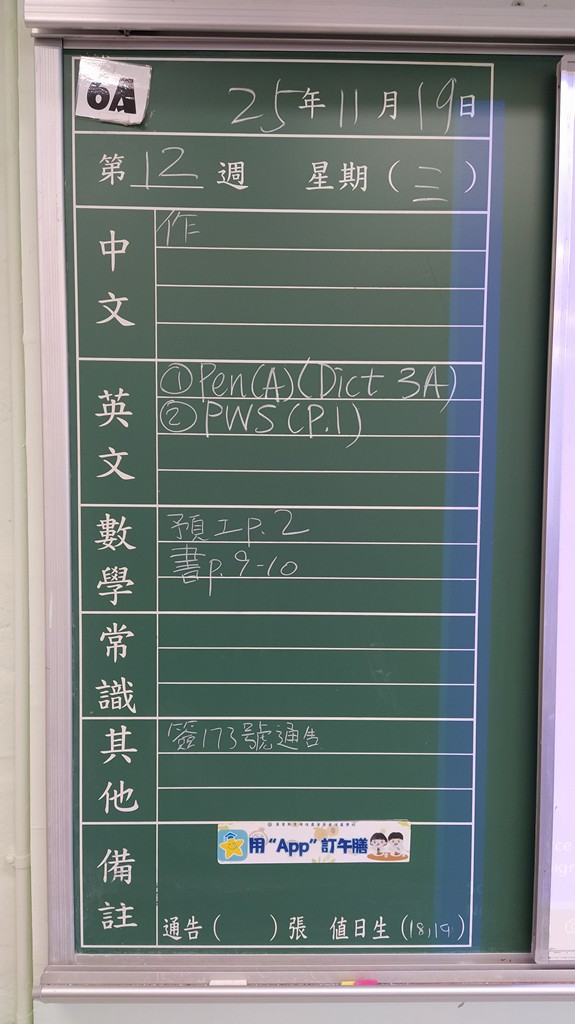 6A
25年11月19日
第12週 星期(三)
中文
作
英文
①Pen(A)(Dict 3A)
②PWS(P.1)
數學
預工p.2
書p.9-10
常識
其他
簽173號通告
備註
用“App”訂午膳
通告( )張 值日生(18,19)